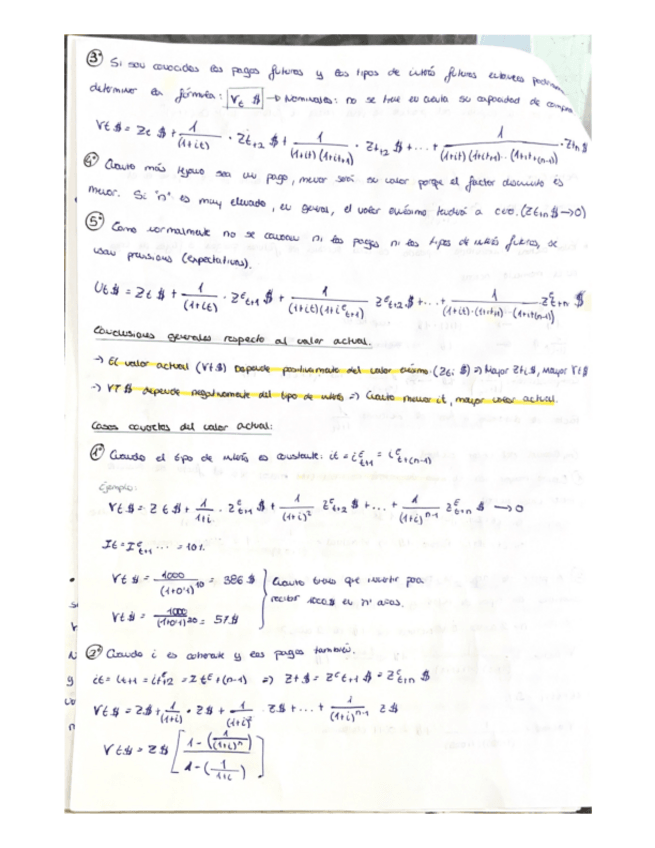 3º Si son conocidos los pagos futuros y los tipos de interés futuros entonces podríamos
determinar la fórmula: Vt $ → Nominales: no se tiene en cuenta su capacidad de compra
Vt $ = Zt $ + 1/(1+it) · Zt+2 $ + 1/(1+it)(1+it+1) · Zt+2 $ + ... + 1/(1+it)(1+it+1)..(1+it+(n-1)) · Ztn $
4º Cuanto más lejano sea un pago, menor será su valor porque el factor descuento es
menor. Si "n" es muy elevado, en general, el valor enésimo tenderá a cero. (Zt+n $ → 0)
5º Como normalmente no se conocen ni los pagos ni los tipos de interés futuros, se
usan previsiones (expectativas).
Vt $ = Zt $ + 1/(1+it) · Zᵉt+1 $ + 1/(1+it)(1+iᵉt+1) Zᵉt+2 $ + ... + 1/(1+it)·(1+it+1)··(1+it+(n-1)) Zᵉt+n $
Conclusiones generales respecto al valor actual.
→ El valor actual (Vt $) Depende positivamente del valor (Zt; $) ⇒ Mayor Zti $, Mayor Vt $
→ VT $ depende negativamente del tipo de interés ⇒ Cuanto menor it, mayor valor actual.
Casos concretos del valor actual:
1º Cuando el tipo de interés es constante: it = iᵉt+1 = iᵉt+(n-1)
Ejemplo:
Vt $ = Zt $ + 1/1+i · Zᵉt+1 $ + 1/(1+i)² Zᵉt+2 $ + ... + 1/(1+i)ⁿ⁻¹ Zᵉt+n $ → 0
It = Iᵉt+1 ... = 10%
Vt $ = 1000/(1+0'1)¹⁰ = 386 $ } Cuanto tengo que invertir para
recibir 1000 $ en nº años.
Vt $ = 1000/(1+0'1)³⁰ = 57 $
2º Cuando i es constante y los pagos también.
it = it+1 = iᵉt+2 = Itᵉ+(n-1) ⇒ Zt $ = Zᵉt+1 $ = Zᵉt+n $
Vt $ = Z $ + 1/(1+i) · Z $ + 1/(1+i)² · Z $ + ... + 1/(1+i)ⁿ⁻¹ Z $
Vt $ = Z $ [ 1 - (1/(1+i)ⁿ) / 1 - (1/1+i) ]